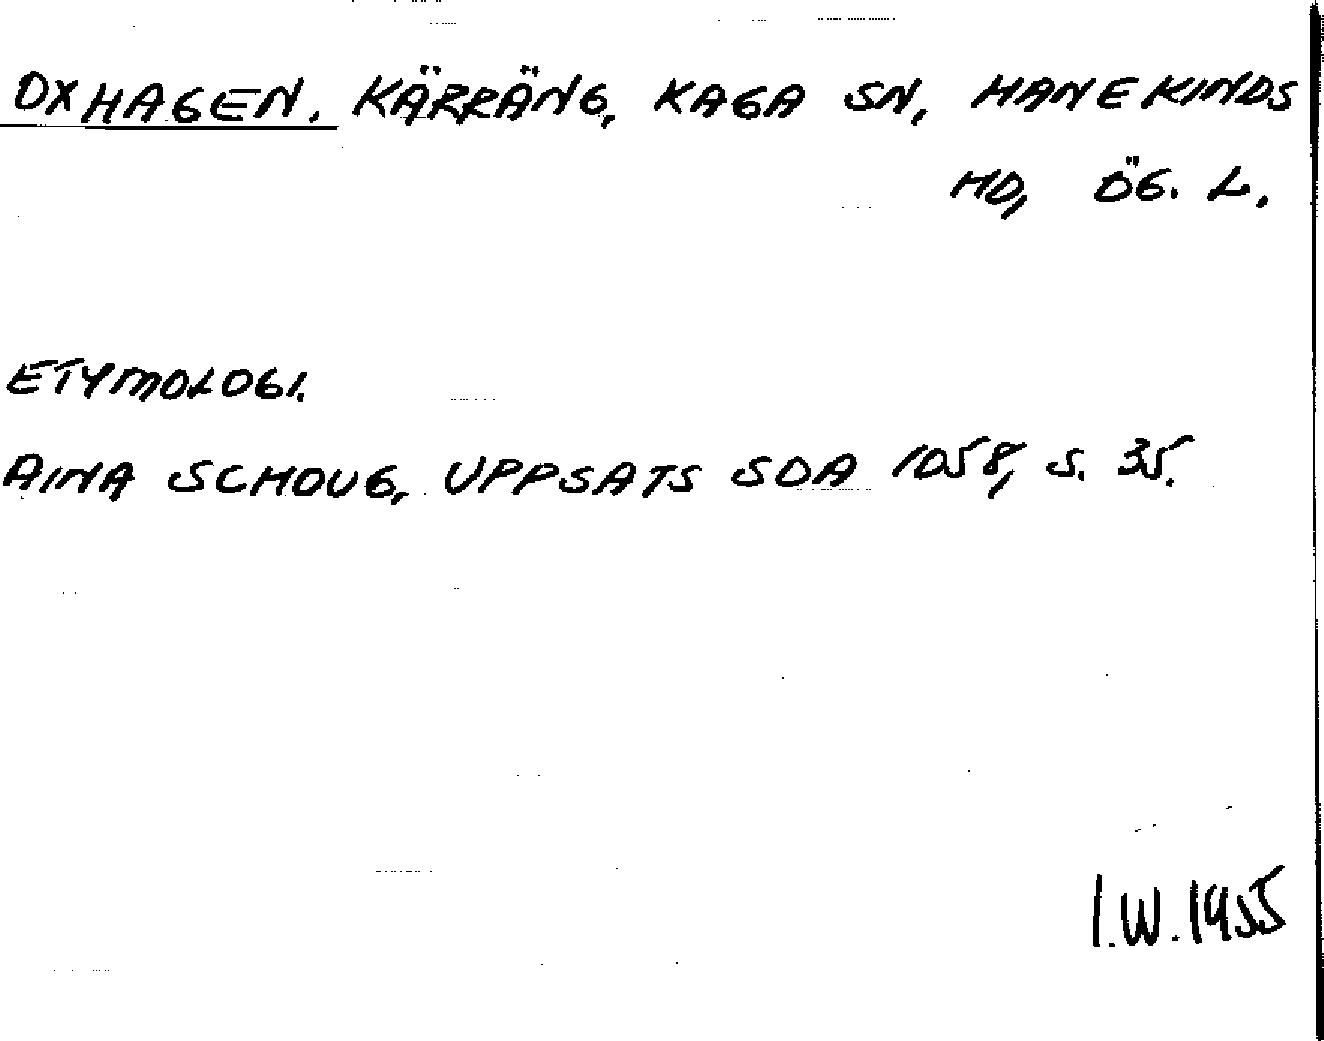 OXHAGEN. KÄRRÄNG, KAGA SN, HANEKINDS
HD, ÖG. L.
ETYMOLOGI.
AINA SCHOUG, UPPSATS SOA 1058, S. 35.
I.W. 1955